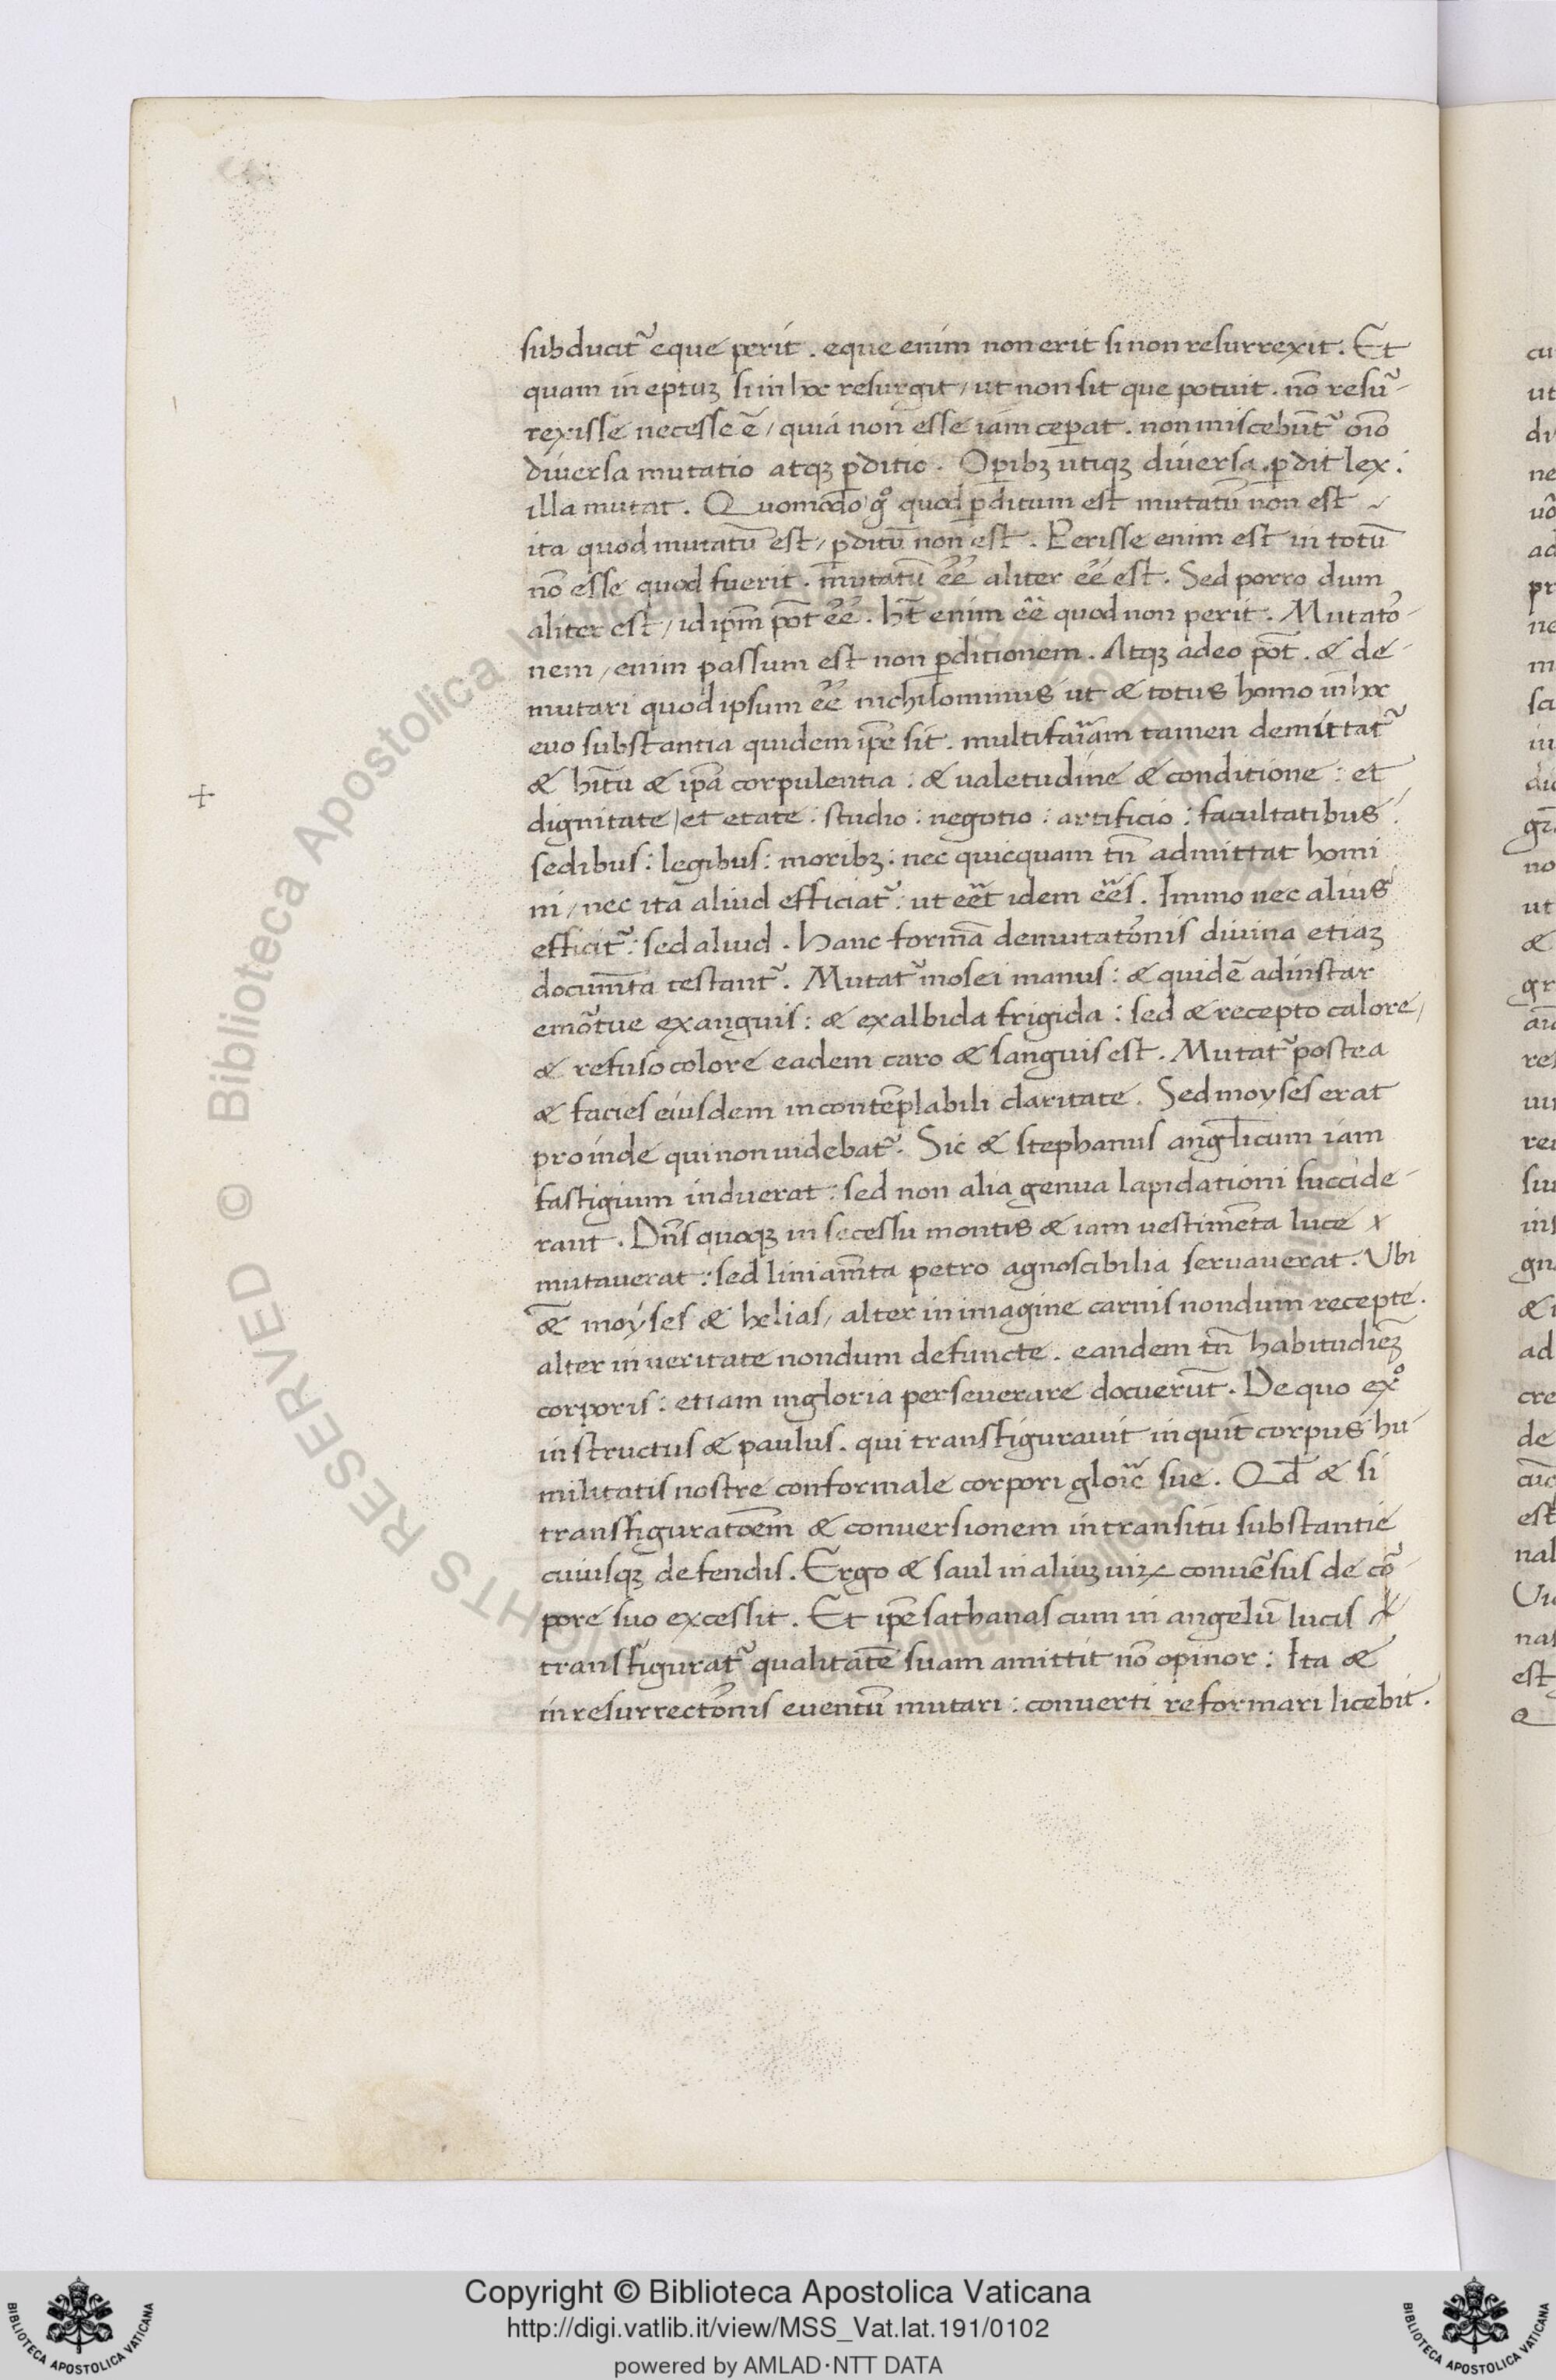 subducit᷑ eque perit . eque enim non erit si non resurrexit . Et
quam ineptuꝫ si in hoc resurgit / ut non sit que potuit . nō resu᷑-
rexisse necesse ē / quia non esse iam ceperat . non miscebunt᷑ oīo
diversa mutatio atqꝫ ꝑditio . Oꝑibꝫ utiqꝫ diversa . ꝑdit lex :
illa mutat . Quomodo gͦ quod ꝑditum est mutatū non est
ita quod mutatū est / ꝑditū non est . Perisse enim est in totū
nō esse quod fuerit . mutatū ēē aliter ēē est . Sed porro dum
aliter est / id ipm̄ pōt ēē . ht̄ enim ēē quod non perit . Mutatō-
nem / enim passum est non ꝑditionem . Atqꝫ adeo pōt . & de-
mutari quod ipsum ēē nichilominus ut & totus homo in hoc
evo substantia quidem ip̄e sit . multifariam tamen demittat᷑
& hitū & ip̄a corpulentia : & valetudine & conditione : et
dignitate / et etate : studio : negotio : artificio : facultatibus :
sedibus : legibus : moribꝫ : nec quicquam tn̄ admittat homi
ni / nec ita aliud efficiat᷑ : ut eēt idem eēs . Immo nec alius
efficit᷑ : sed aliud . Hanc formā demutatōnis divina etiaꝫ
documt̄a testant᷑ . Mutat᷑ mosei manus : & quidē ad instar
emo᷑tue exanguis : & exalbida frigida : sed & recepto calore /
& refuso colore eadem caro & sanguis est . Mutat᷑ postea
& facies eiusdem incontēplabili claritate . Sed moyses erat
proinde qui non videbat᷑ . Sic & stephanus angl̄icum iam
fastigium induerat : sed non alia genua lapidationi succide-
rant . Dn̄s quoqꝫ in secessu montis & iam vestimēta luce
mutaverat : sed liniamt̄a petro agnoscibilia servaverat . Ubi
&̄ moyses & helias / alter in imagine carnis nondum recepte .
alter in veritate nondum defuncte . eandem tn̄ habitudiēꝫ
corporis : etiam in gloria perseverare docuerūt . De quo exͦ
instructus & paulus . qui transfiguravit inquit corpus hu-
militatis nostre conformale corpori glorie sue . Qd̄ & si
transfiguratoēm & conversionem in transitū substantie
cuiusqꝫ defendis . Ergo & saul in aliuꝫ vir conve᷑sus de co᷑-
pore suo excessit . Et ip̄e sathanas cum in angelū lucis
transfigurat᷑ qualitatē suam amittit nō opinor : Ita &
in resurrectōnis eventū mutari : converti reformari licebit .
Copyright © Biblioteca Apostolica Vaticana
http://digi.vatlib.it/view/MSS_Vat.lat.191/0102
powered by AMLAD·NTT DATA